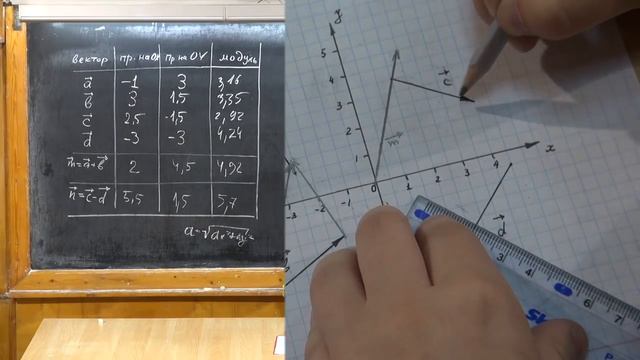 вектор пр. на OX пр. на OY модуль
a -1 3 3,16
b 3 1,5 3,35
c 2,5 -1,5 2,92
d -3 -3 4,24
m=a+b 2 4,5 4,92
n=c-d 5,5 1,5 5,7
y
5
4
3
2
1
c
m
x
-3 -2 -1 0 1 2 3 4
d
3 4 5 6 7